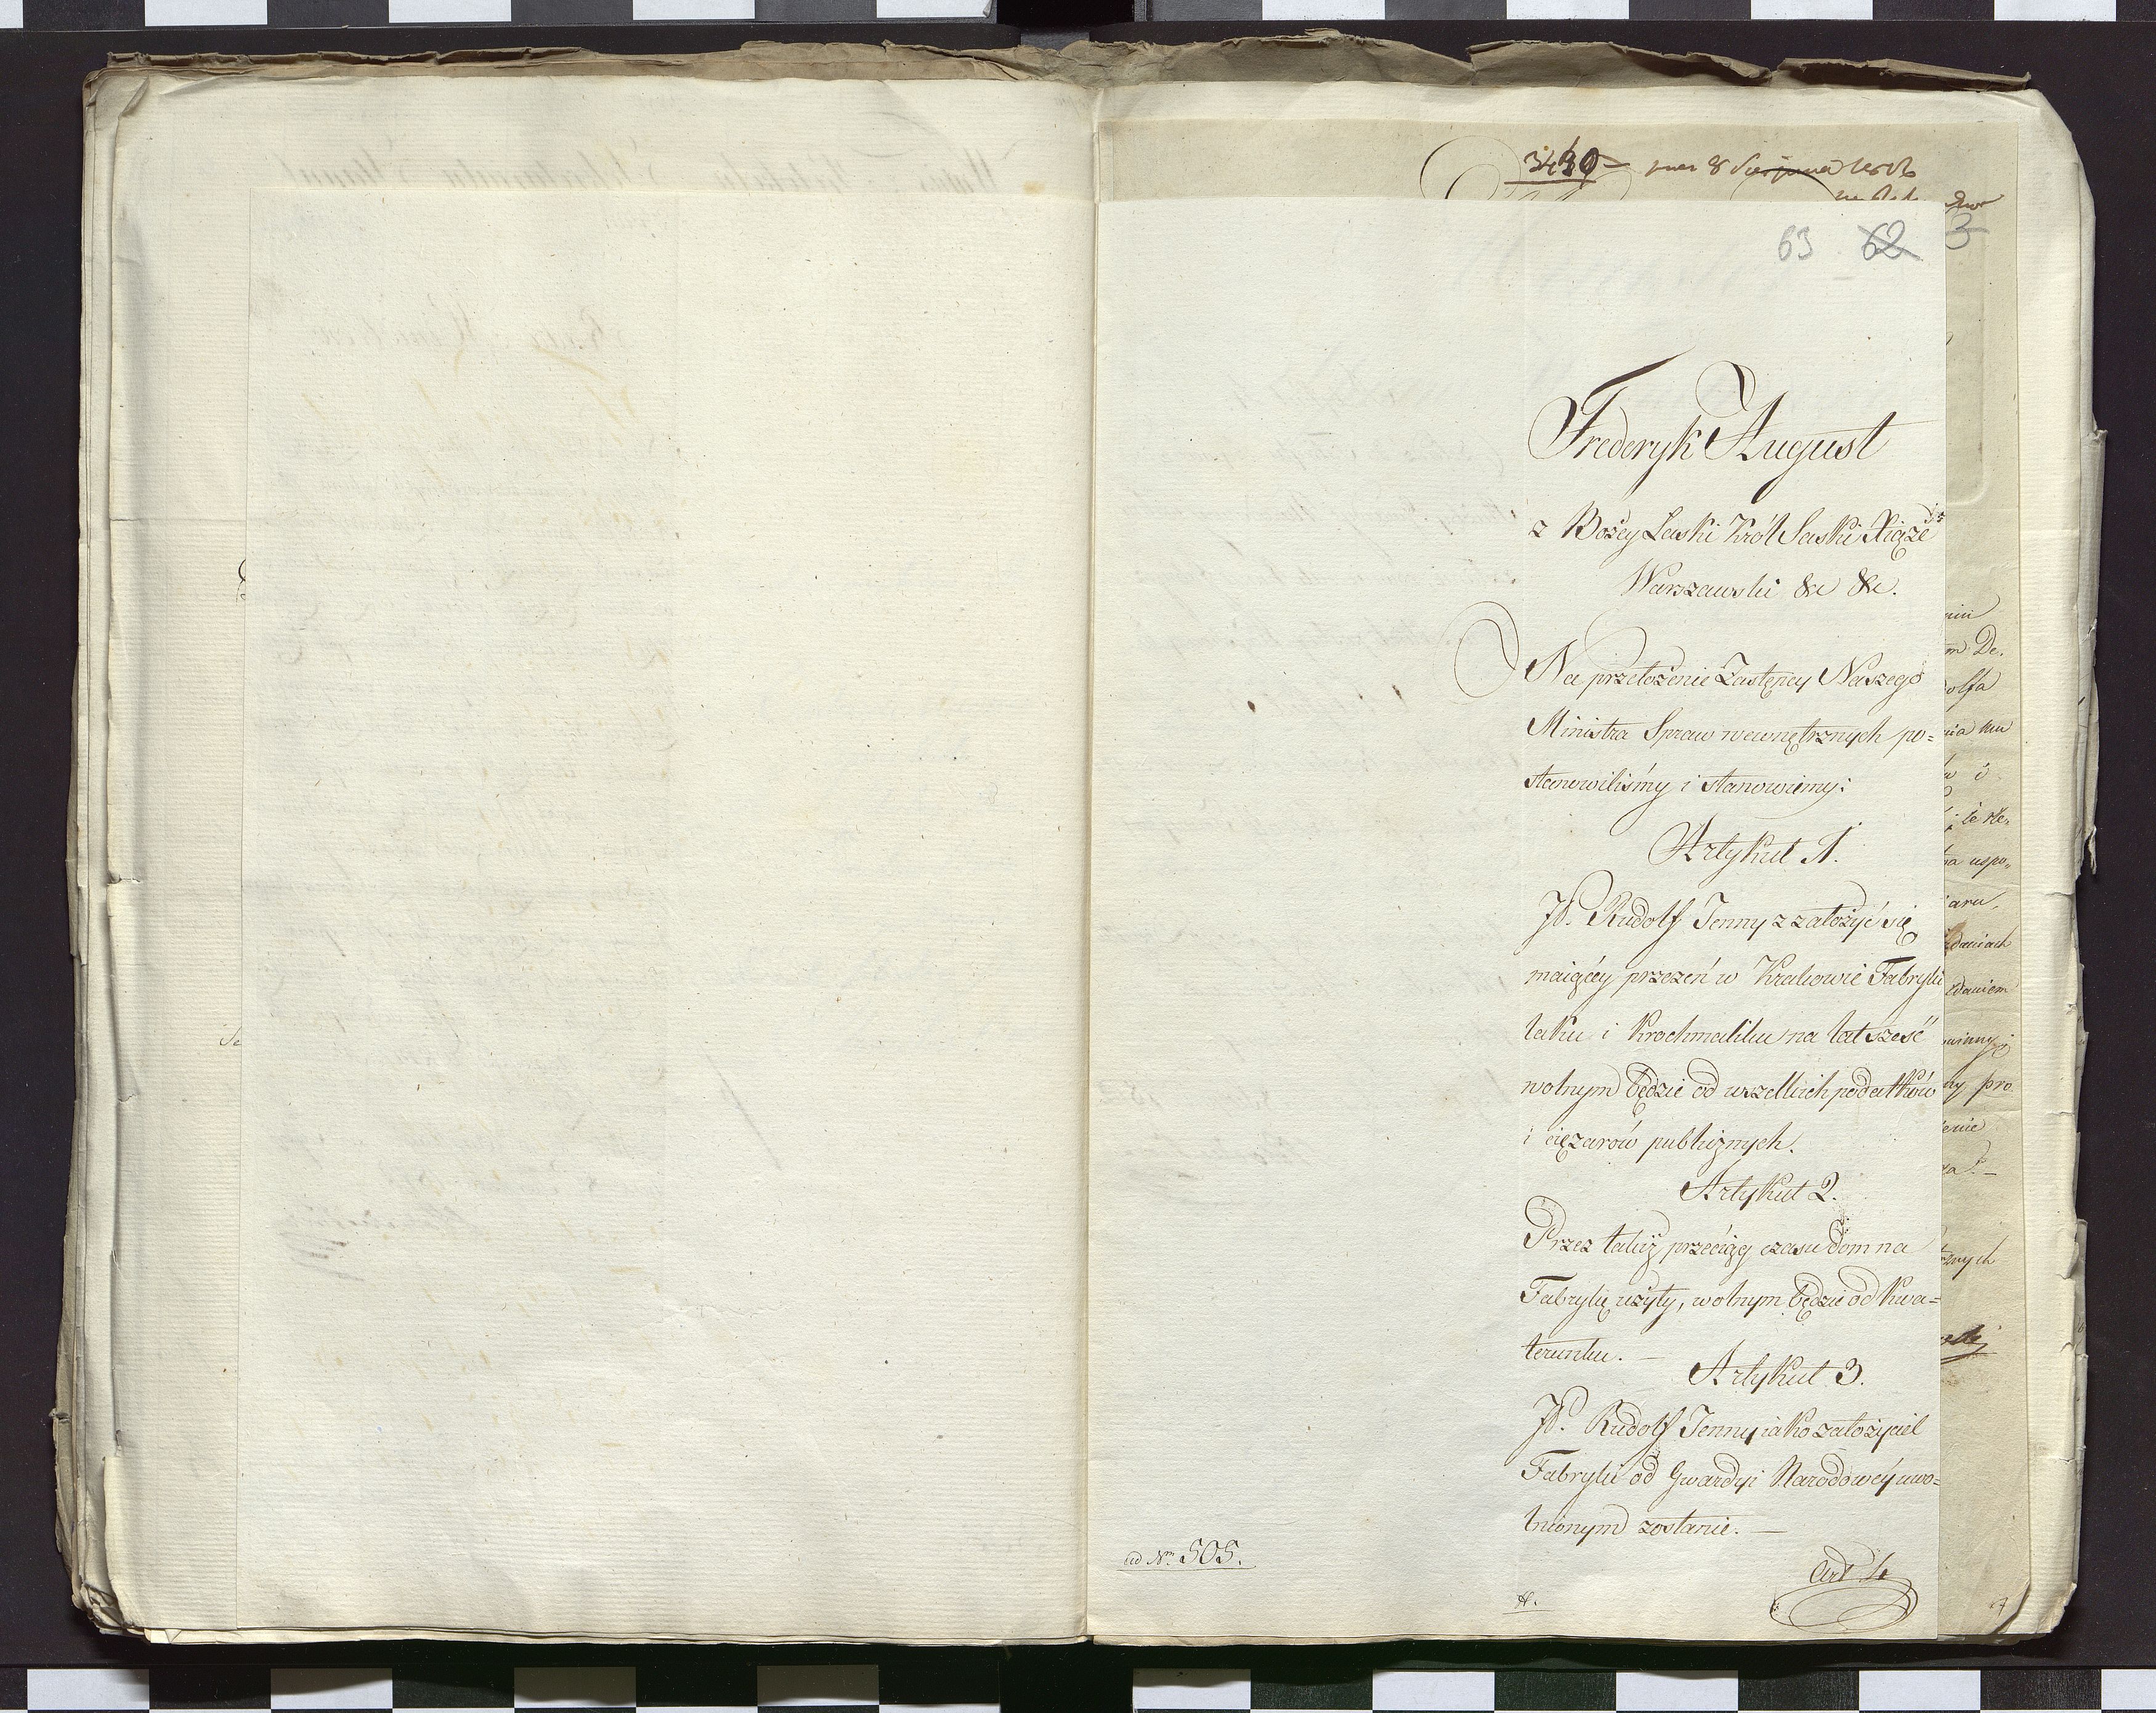 3430
63 62
3
Frederyk August
z Bożey Łaski Król Saski Xiążę
Warszawski &c &c.
Na przełożenie Zastępcy Naszego
Ministra Spraw wewnętrznych po=
stanowiliśmy i stanowiemy:
Artykuł 1.
JP. Rudolf Jenny z założyć się
maiącéy przezeń w Krakowie Fabryki
laku i Krochmaliku na lat sześć
wolnym będzie od wszelkich podatków
i ciężarów publicznych.
Artykuł 2.
Przez takiż przeciąg czasu dom na
Fabrykę użyty, wolnym będzie od kwa=
terunku. —
Artykuł 3.
JP. Rudolf Jenny iako założyciel
Fabryki od Gwardyi Narodowéy uwo=
lnionym zostanie. —
ad Nm 505.
Art 4